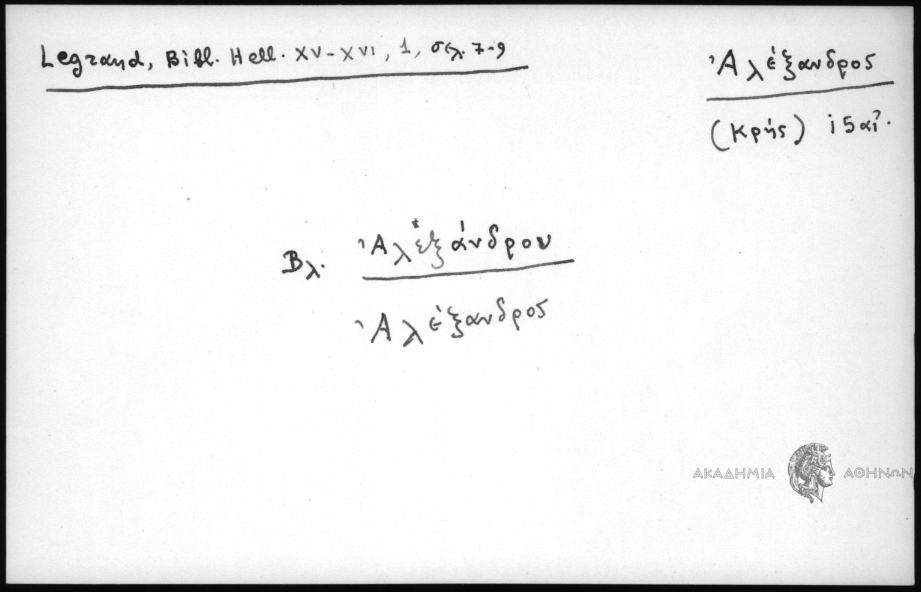 Legrand, Bibl. Hell. XV-XVI, 1, σελ. 7-9
Ἀλέξανδρος
(Κρής) 15 αἰ.
Βλ. Ἀλεξάνδρου
Ἀλέξανδρος
ΑΚΑΔΗΜΙΑ ΑΘΗΝΩΝ